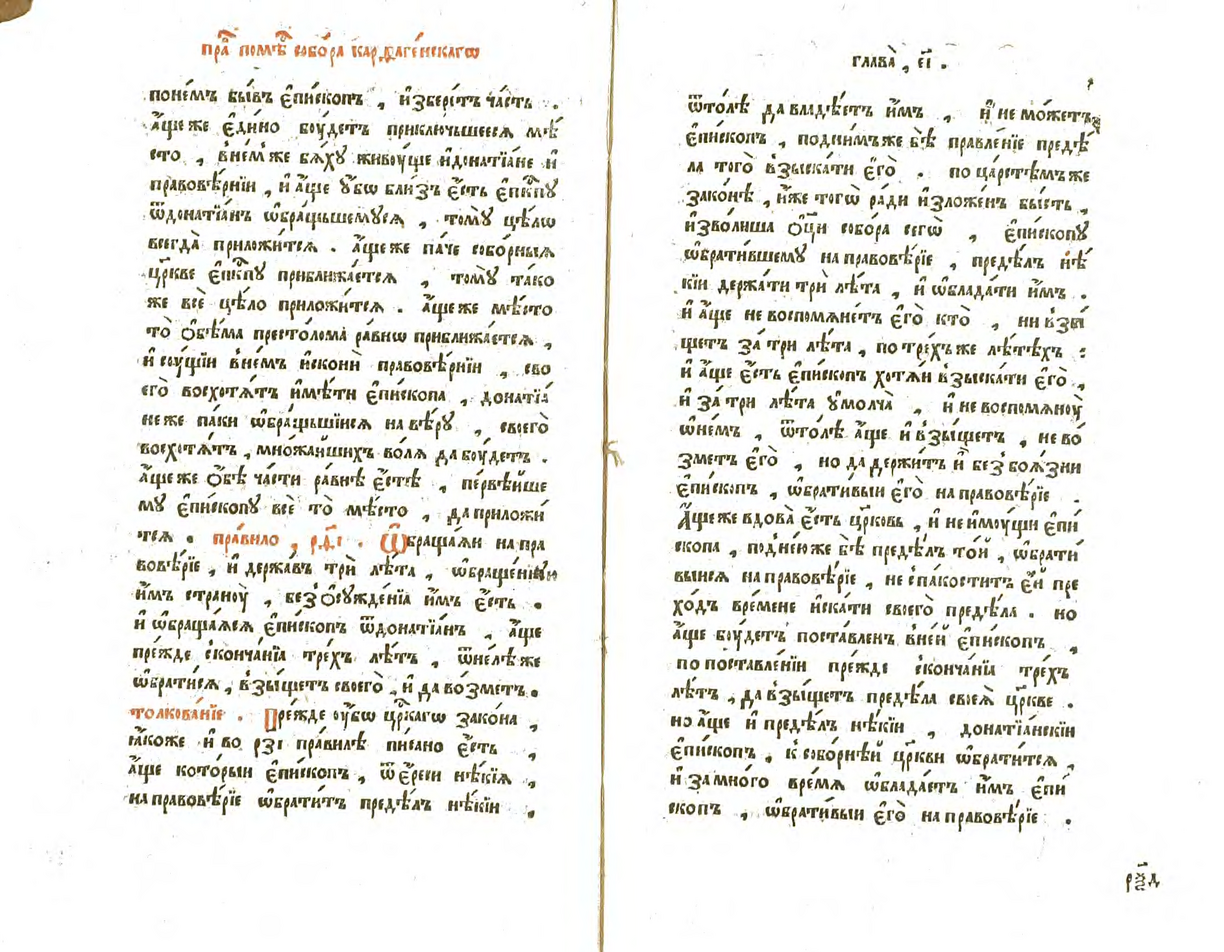 пра́ помѣ́ собо́ра карѳаге́нскагѡ
поне́мъ бы́въ є҆пи́скопъ , и҆збере́тъ ча́сть .
а҆́ще же є҆ди́но бꙋ́детъ приклю́чьшееся мѣ́
сто , вне́м же бѧ́хꙋ живꙋ́ще и҆донатїа́не и҆
правовѣ́рнїи , и҆ а҆́ще ᲂу҆́бо бли́зъ є҆́сть є҆пк҃пꙋ
ѿдонатїа́нъ ѡ҆бра́щьшемꙋся , томꙋ̀ цѣ́лѡ
всегда̀ приложи́тся . а҆́ще же па́че собо́рныя
цр҃кве є҆пк҃пꙋ приближа́ется , томꙋ̀ та́ко
же всѐ цѣ́ло приложи́тся . а҆́ще же мѣ́сто
то̀ ѻ҆бѣ́ма престо́лома ра́внѡ приближа́ется ,
и҆ сꙋ́щїи вне́мъ и҆сконѝ правовѣ́рнїи , сво
его̀ восхотѧ́тъ и҆мѣ́ти є҆пи́скопа , донатїа́
не же па́ки ѡ҆бра́щьшїися на вѣ́рꙋ , своего̀
восхотѧ́тъ , мно́жаишихъ во́ля да бꙋ́детъ .
а҆́ще же ѻ҆́бѣ ча́сти ра́внѣ є҆́стѣ , первѣ́йше
мꙋ є҆пи́скопꙋ всѐ то̀ мѣ́сто , да приложи́
тся . пра́вило , рд҃і . Ѡ҆браща́ѧи на пра
вовѣ́рїе , и҆ держа́въ трѝ лѣ́та , ѡ҆браще́нꙋю
и҆́мъ странꙋ̀ , без ѻ҆сꙋжде́нїа и҆́мъ є҆́сть .
и҆ ѡ҆браща́ѧся є҆пи́скопъ ѿдонатїа́нъ , а҆́ще
пре́жде сконча́нїа тре́хъ лѣ́тъ , ѿне́лѣ же
ѡ҆брати́ся , взы́щетъ своего̀ , и҆ да во́зметъ .
толкова́нїе . Пре́жде ᲂу҆́бо цр҃кагѡ зако́на ,
ꙗ҆́коже и҆ во рзі пра́вилѣ пи́сано є҆́сть ,
а҆́ще кото́рыи є҆пи́скопъ , ѿ є҆́реси нѣ́кїя ,
на правовѣ́рїе ѡ҆брати́тъ предѣ́лъ нѣ́кїи ,
глава̀ , є҃і .
ѿто́лѣ да владѣ́етъ и҆́мъ , и҆ не мо́жетъ
є҆пи́скопъ , подни́мъже бѣ̀ правле́нїе предѣ́
ла того̀ взыска́ти є҆го̀ . по ца́рстѣмъ же
зако́нѣ , и҆́же тогѡ̀ ра́ди и҆зложе́нъ бы́сть ,
и҆зво́лиша ѻ҆ц҃и собо́ра сегѡ̀ , є҆пи́скопꙋ
ѡ҆брати́вшемꙋ на правовѣ́рїе , предѣ́лъ нѣ́
кїи держа́ти трѝ лѣ́та , и҆ ѡ҆блада́ти и҆́мъ .
и҆ а҆́ще не воспомѧне́тъ є҆го̀ кто̀ , ни взы́
щетъ за̀ три лѣ́та , по тре́хъ же лѣ́тѣхъ :
и҆ а҆́ще є҆́сть є҆пи́скопъ хотѧ́и взыска́ти є҆го̀ ,
и҆ за̀ три лѣ́та ᲂу҆молча̀ , и҆ не воспомѧнꙋ̀
ѡ҆не́мъ , ѿто́лѣ а҆́ще и҆ взы́щетъ , не во́
зметъ є҆го̀ , но да держи́тъ и҆̀ без боѧ́зни
є҆пи́скопъ , ѡ҆брати́выи є҆го̀ на правовѣ́рїе .
А҆́ще же вдова̀ є҆́сть цр҃ковь , и҆ не и҆мꙋ́щи є҆пи́
скопа , под нею́же бѣ̀ предѣ́лъ то́й , ѡ҆брати́
выися на правовѣ́рїе , не спа́коститъ є҆́й пре
хо́дъ вре́мене и҆ска́ти своего̀ предѣ́ла . но
а҆́ще бꙋ́детъ поста́вленъ вне́й є҆пи́скопъ ,
по поставле́нїи пре́жде сконча́нїа тре́хъ
лѣ́тъ , да взы́щетъ предѣ́ла своея̀ цр҃кве .
но а҆́ще и҆ предѣ́лъ нѣ́кїи , донатїа́нскїи
є҆пи́скопъ , к собо́рнѣй цр҃кви ѡ҆брати́тся ,
и҆ за мно́го вре́мя ѡ҆блада́етъ и҆́мъ є҆пи́
скопъ , ѡ҆брати́выи є҆го̀ на правовѣ́рїе .
рѯ҃д